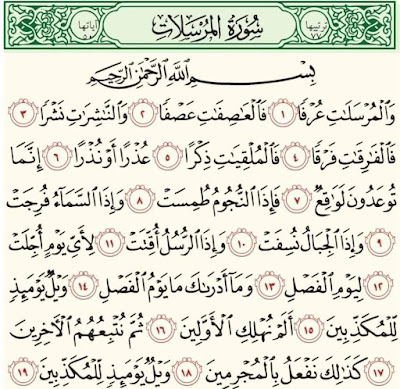 ترتيبها ٧٧ سُورَةُ المُرْسَلَاتِ آياتها ٥٠
بِسْمِ اللَّهِ الرَّحْمَٰنِ الرَّحِيمِ
وَالْمُرْسَلَاتِ عُرْفًا ١ فَالْعَاصِفَاتِ عَصْفًا ٢ وَالنَّاشِرَاتِ نَشْرًا ٣
فَالْفَارِقَاتِ فَرْقًا ٤ فَالْمُلْقِيَاتِ ذِكْرًا ٥ عُذْرًا أَوْ نُذْرًا ٦ إِنَّمَا
تُوعَدُونَ لَوَاقِعٌ ٧ فَإِذَا النُّجُومُ طُمِسَتْ ٨ وَإِذَا السَّمَاءُ فُرِجَتْ
٩ وَإِذَا الْجِبَالُ نُسِفَتْ ١٠ وَإِذَا الرُّسُلُ أُقِّتَتْ ١١ لِأَيِّ يَوْمٍ أُجِّلَتْ
١٢ لِيَوْمِ الْفَصْلِ ١٣ وَمَا أَدْرَاكَ مَا يَوْمُ الْفَصْلِ ١٤ وَيْلٌ يَوْمَئِذٍ
لِّلْمُكَذِّبِينَ ١٥ أَلَمْ نُهْلِكِ الْأَوَّلِينَ ١٦ ثُمَّ نُتْبِعُهُمُ الْآخِرِينَ
١٧ كَذَٰلِكَ نَفْعَلُ بِالْمُجْرِمِينَ ١٨ وَيْلٌ يَوْمَئِذٍ لِّلْمُكَذِّبِينَ ١٩